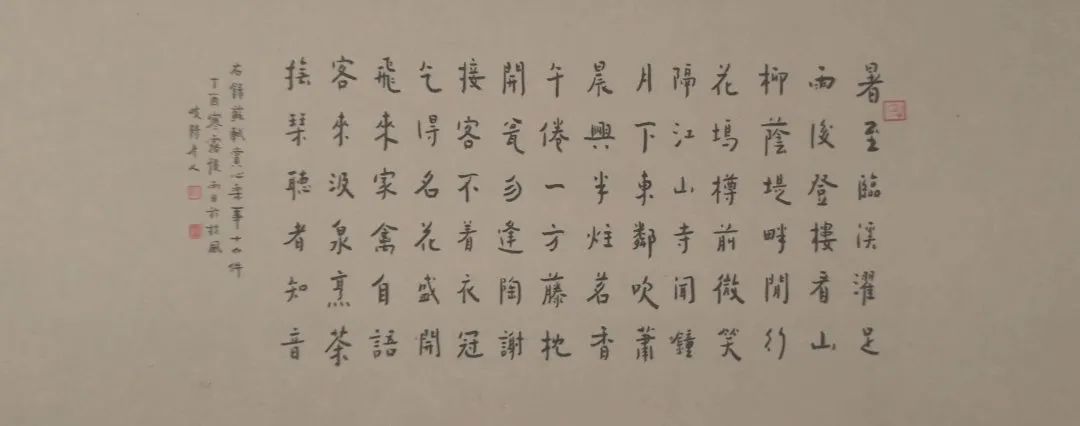 暑至臨溪濯足
雨後登樓看山
柳蔭堤畔閒行
花塢樽前微笑
隔江山寺聞鐘
月下東鄰吹蕭
晨興半炷茗香
午倦一方藤枕
開瓮勿逢陶謝
接客不着衣冠
乞得名花盛開
飛來家禽自語
客來汲泉烹茶
撫琹聽者知音
右錄蘇軾賞心樂事十六件
丁酉寒露後兩日於扶風
岐陽人